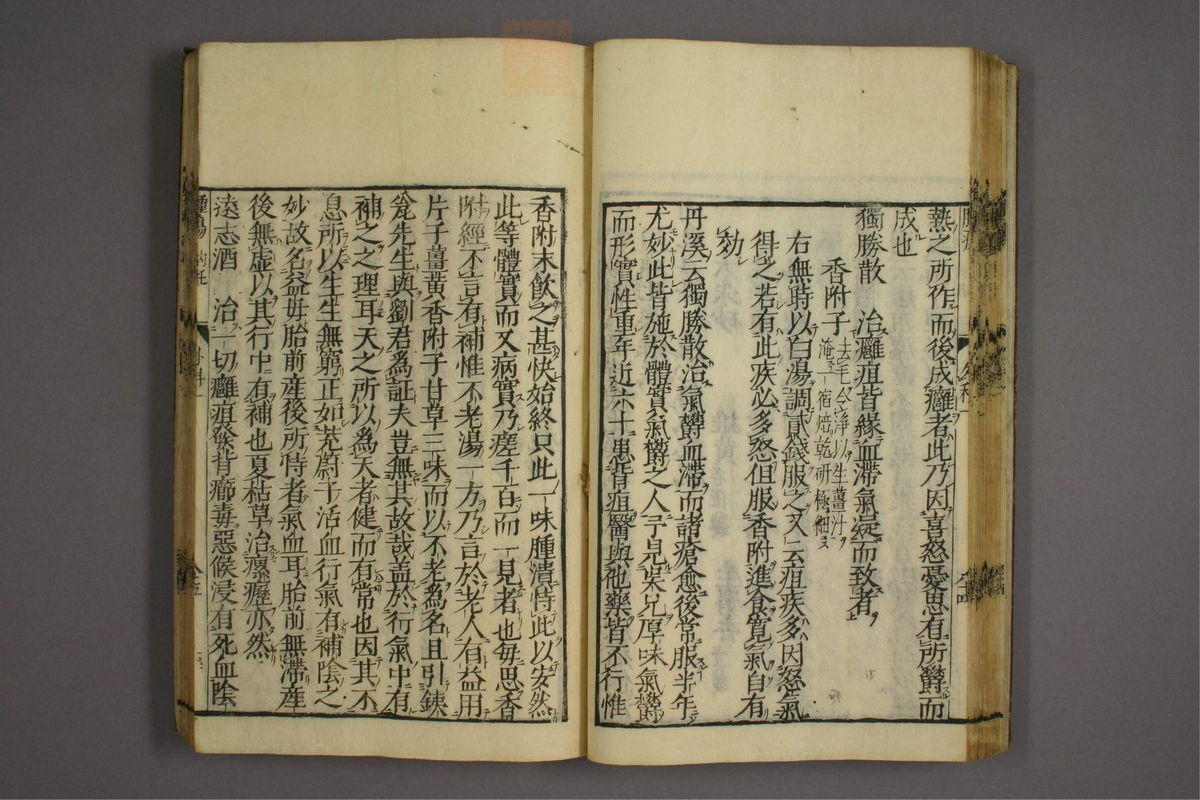 熱之所作而後成癰者此乃因喜怒憂思有所欝而
成也
獨勝散　治癰疽皆緣血滯氣凝而致者
香附子 去毛令淨以生薑汁
淹一宿焙乾研極細
右無時以白湯調貳錢服之又云疽疾多因怒氣
得之若有此疾必多怒但服香附進食寛氣自有
効
丹溪云獨勝散治氣欝血滯而諸瘡愈後常服半年
尤妙此皆施於體實氣欝之人予見吳兄厚味氣欝
而形實性重年近六十患背疽醫與他藥皆不行惟
香附末飲之甚快始終只此一味腫潰恃此以安然
此等體實而又病實乃瘥千百而一見者也每思香
附經不言有補惟不老湯一方乃言於老人有益用
片子薑黃香附子甘草三味而以不老為名且引鐵
瓮先生與劉君為証夫豈無其故哉盖於行氣中有
補之之理耳天之所以為天者健而有常也因其不
息所以生生無窮正如茺蔚子活血行氣有補陰之
妙故名益母胎前産後所恃者氣血耳胎前無滯産
後無虛以其行中有補也夏枯草治瘰癧亦然
遠志酒　治一切癰疽發背癤毒惡候浸有死血陰